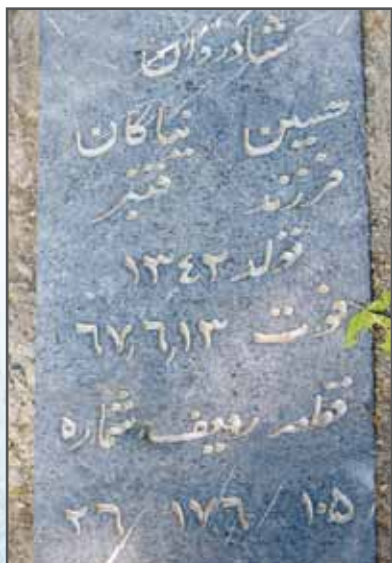 شادروان
حسین نیاکان
فرزند قنبر
تولد ۱۳۴۲
فوت ۶۷٫۶٫۱۳
قطعه ردیف شماره
۱۰۵ / ۱۷۶ / ۲۶